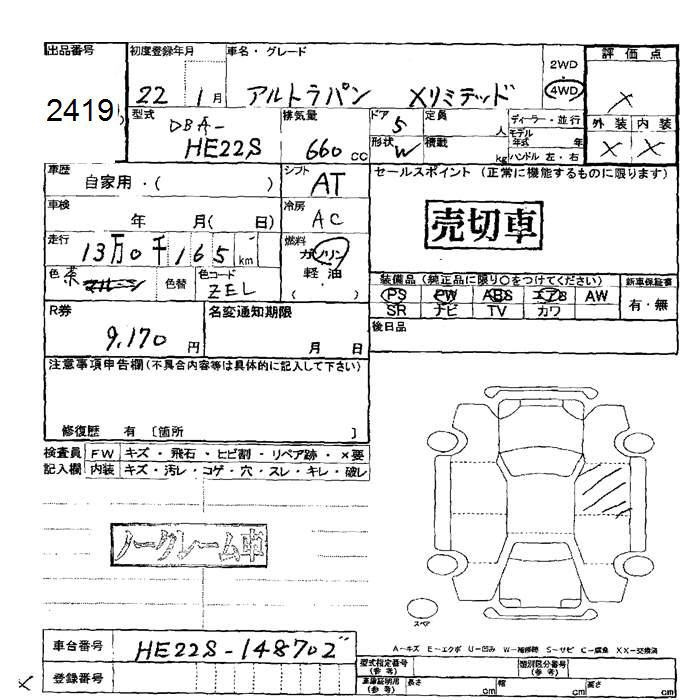 出品番号 初度登録年月 車名・グレード 2WD 評価点
2419 22 1月 アルトラパン Xリミテッド 4WD X
型式 排気量 ドア 5 定員 人 ディーラー・並行 外装 内装
DBA- モデル年式 年
HE22S 660cc 形状 W 積載 kg ハンドル 左・右 X X
車歴 シフト セールスポイント (正常に機能するものに限ります)
自家用・( ) AT
車検 年 月( 日) 冷房 AC 売切車
走行 13万0千165km 燃料 ガソリン
軽・油
( )
色 茶 色替 色コード ZEL
装備品(純正品に限り○をつけてください) 新車保証書
PS PW ABS エアB AW 有・無
SR ナビ TV カワ
R券 名変通知期限 後日品
9,170円 月 日
注意事項申告欄(不具合内容等は具体的に記入して下さい)
修復歴 有 [箇所 ]
検査員 FW キズ・飛石・ヒビ割・リペア跡・×要
記入欄 内装 キズ・汚レ・コゲ・穴・スレ・キレ・破レ
ノークレーム車
スペア
A-キズ E-エクボ U-凹み W-補修跡 S-サビ C-腐食 XX-交換済
車台番号 HE22S-148702
型式指定番号(参考) 類別区分番号(参考)
X 登録番号
車庫証明用(参考) 長さ cm 幅 cm 高さ cm